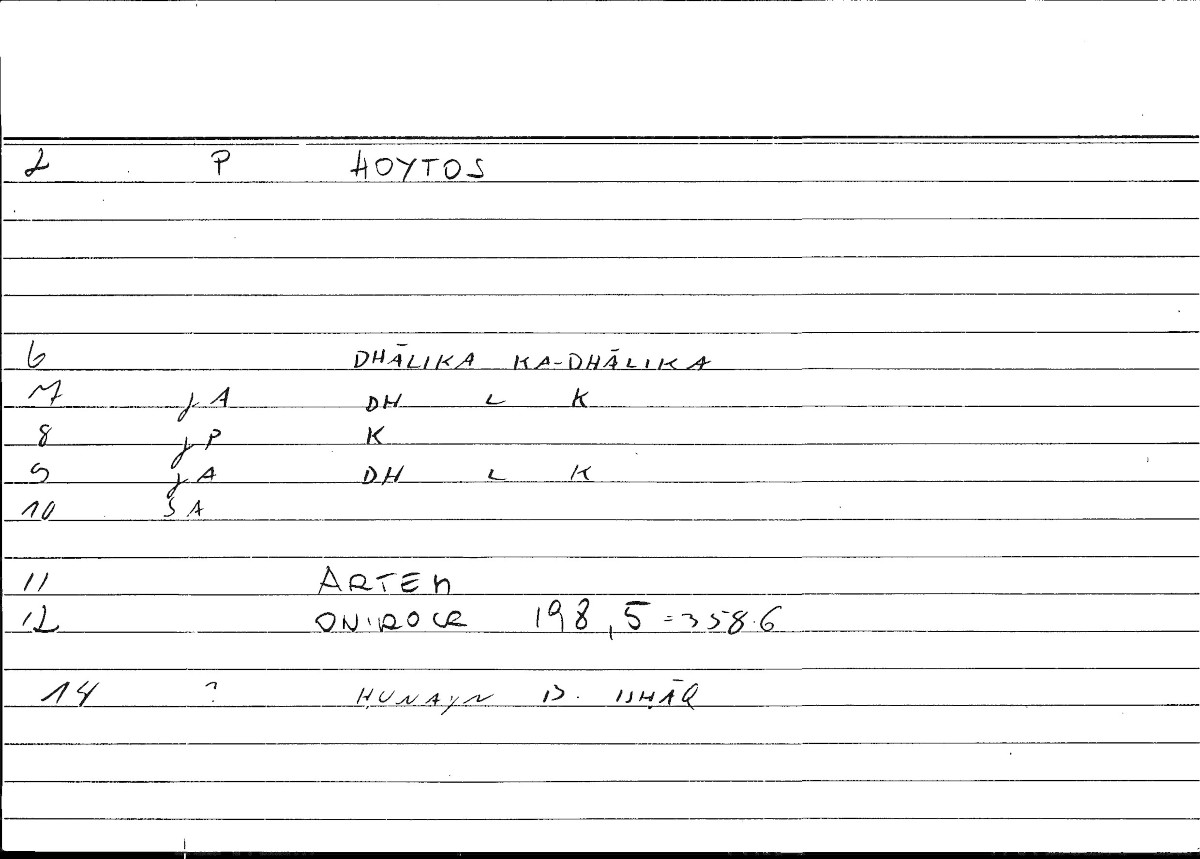 2 P HOYTOS
6 DHĀLIKA KA-DHĀLIKA
7 jA DH L K
8 jP K
9 jA DH L K
10 SA
11 ARTEM
12 ONIROCR 198,5=358.6
14 ? ḤUNAYN B. ISḤĀQ